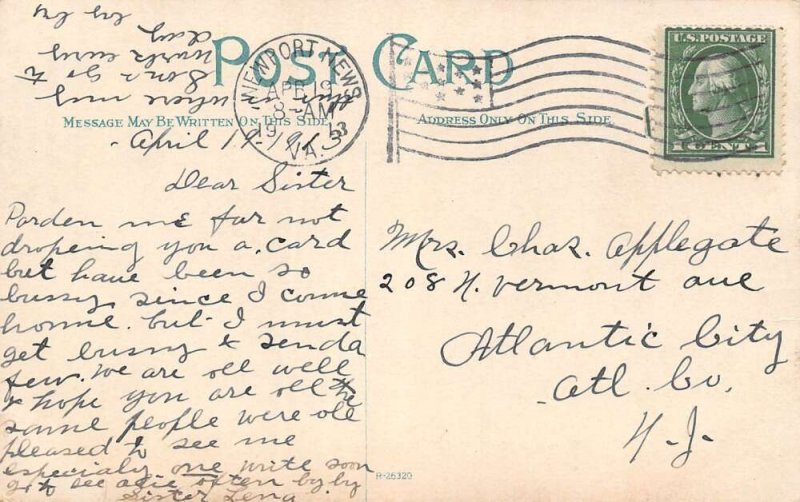 POST CARD
MESSAGE MAY BE WRITTEN ON THIS SIDE
ADDRESS ONLY ON THIS SIDE
NEWPORT NEWS
APR 19
8-AM
VA.
U.S.POSTAGE
1 CENT 1
April 19-1913
Dear Sister
Parden me far not
droping you a. card
but have been so
bussy since I come
home. but I must
get bussy & send a
few. We are all well
& hope you are all the
same people were all
pleased to see me
especialy one write soon
go to see often by by
Sister Lena
this is where
Sam. Go to
work every
day
Mrs. Chas. Applegate
208 N. Vermont ave
Atlantic City
Atl. Co.
N-J-
R-26320